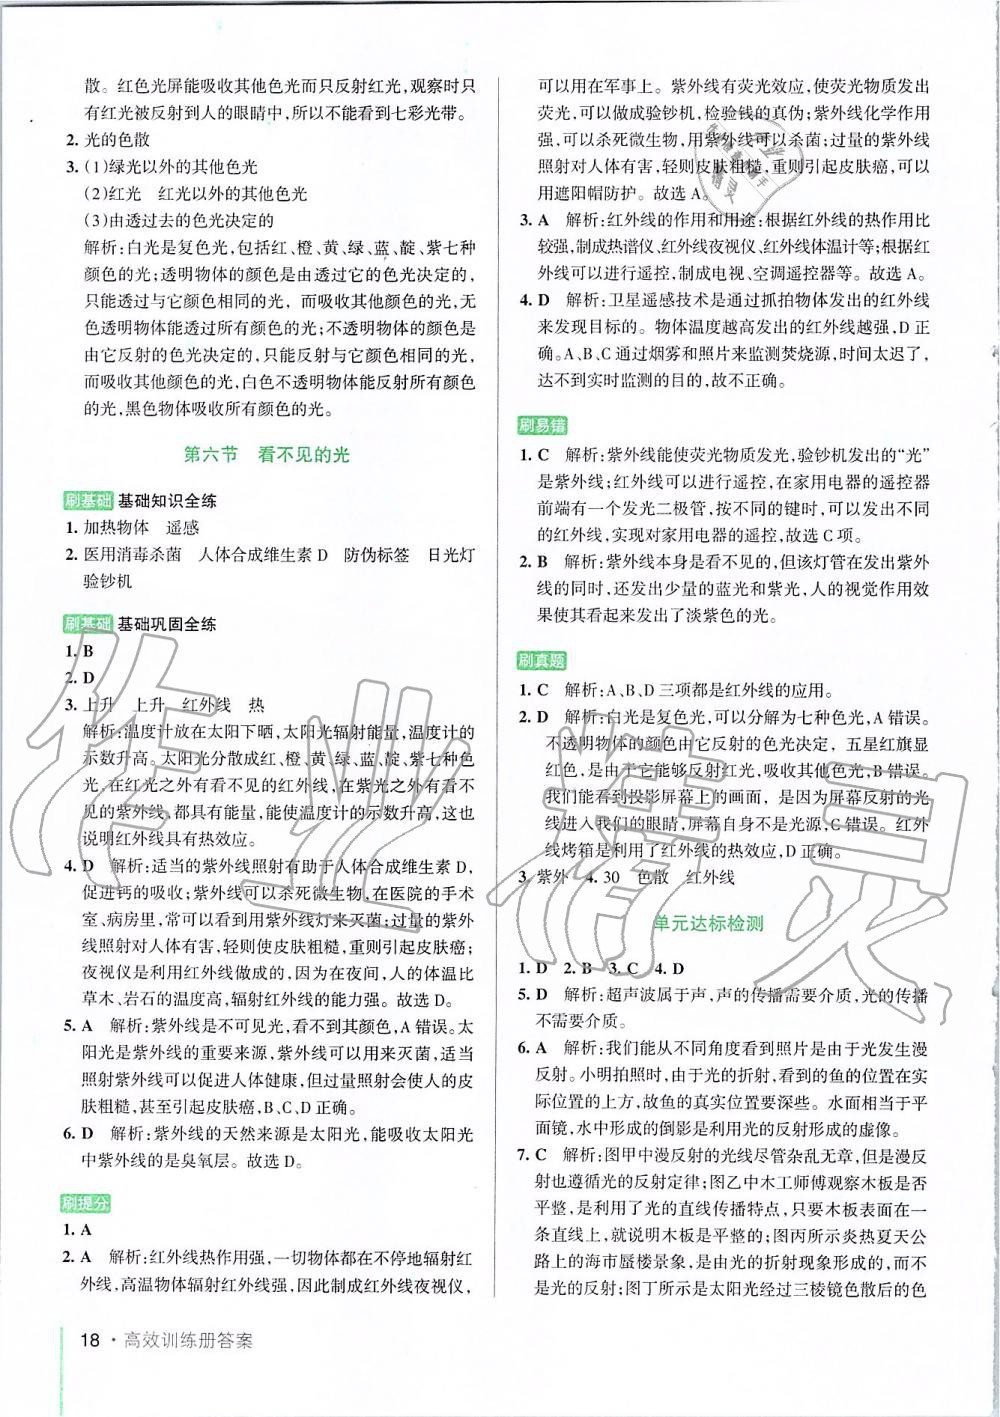 散。红色光屏能吸收其他色光而只反射红光,观察时只
有红光被反射到人的眼睛中,所以不能看到七彩光带。
2. 光的色散
3. (1)绿光以外的其他色光
(2)红光　红光以外的其他色光
(3)由透过去的色光决定的
解析:白光是复色光,包括红、橙、黄、绿、蓝、靛、紫七种
颜色的光;透明物体的颜色是由透过它的色光决定的,
只能透过与它颜色相同的光, 而吸收其他颜色的光,无
色透明物体能透过所有颜色的光;不透明物体的颜色是
由它反射的色光决定的,只能反射与它颜色相同的光,
而吸收其他颜色的光,白色不透明物体能反射所有颜色
的光,黑色物体吸收所有颜色的光。
第六节　看不见的光
刷基础 基础知识全练
1. 加热物体　遥感
2. 医用消毒杀菌　人体合成维生素 D　防伪标签　日光灯
验钞机
刷基础 基础巩固全练
1. B
2. D
3. 上升　上升　红外线　热
解析:温度计放在太阳下晒,太阳光辐射能量,温度计的
示数升高。太阳光分散成红、橙、黄、绿、蓝、靛、紫七种色
光,在红光之外有看不见的红外线,在紫光之外有看不
见的紫外线,都具有能量,能使温度计的示数升高,这也
说明红外线具有热效应。
4. D　解析:适当的紫外线照射有助于人体合成维生素 D,
促进钙的吸收;紫外线可以杀死微生物,在医院的手术
室、病房里,常可以看到用紫外线灯来灭菌;过量的紫外
线照射对人体有害,轻则使皮肤粗糙,重则引起皮肤癌;
夜视仪是利用红外线做成的,因为在夜间,人的体温比
草木、岩石的温度高,辐射红外线的能力强。故选 D。
5. A　解析:紫外线是不可见光,看不到其颜色,A 错误。太
阳光是紫外线的重要来源,紫外线可以用来灭菌,适当
照射紫外线可以促进人体健康,但过量照射会使人的皮
肤粗糙,甚至引起皮肤癌,B、C、D 正确。
6. D　解析:紫外线的天然来源是太阳光,能吸收太阳光
中紫外线的是臭氧层。故选 D。
刷提分
1. A
2. A　解析:红外线热作用强,一切物体都在不停地辐射红
外线,高温物体辐射红外线强,因此制成红外线夜视仪,
18・高效训练册答案
可以用在军事上。紫外线有荧光效应,使荧光物质发出
荧光,可以做成验钞机,检验钱的真伪;紫外线化学作用
强,可以杀死微生物,用紫外线可以杀菌;过量的紫外线
照射对人体有害,轻则皮肤粗糙,重则引起皮肤癌,可以
用遮阳帽防护。故选 A。
3. A　解析:红外线的作用和用途:根据红外线的热作用比
较强,制成热谱仪,红外线夜视仪,红外线体温计等;根据红
外线可以进行遥控,制成电视、空调遥控器等。故选 A。
4. D　解析:卫星遥感技术是通过抓拍物体发出的红外线
来发现目标的。物体温度越高发出的红外线越强,D 正
确。A、B、C 通过烟雾和照片来监测焚烧源,时间太迟了,
达不到实时监测的目的,故不正确。
刷易错
1. C　解析:紫外线能使荧光物质发光,验钞机发出的“光”
是紫外线;红外线可以进行遥控,在家用电器的遥控器
前端有一个发光二极管,按不同的键时,可以发出不同
的红外线,实现对家用电器的遥控,故选 C 项。
2. B　解析:紫外线本身是看不见的,但该灯管在发出紫外
线的同时,还发出少量的蓝光和紫光,人的视觉作用效
果使其看起来发出了淡紫色的光。
刷真题
1. C　解析:A、B、D 三项都是红外线的应用。
2. D　解析:白光是复色光,可以分解为七种色光,A 错误。
不透明物体的颜色由它反射的色光决定, 五星红旗显
红色,是由于它能够反射红光,吸收其他色光,B 错误。
我们能看到投影屏幕上的画面, 是因为屏幕反射的光
线进入我们的眼睛,屏幕自身不是光源,C 错误。红外
线烤箱是利用了红外线的热效应,D 正确。
3. 紫外　4. 30　色散　红外线
单元达标检测
1. D　2. B　3. C　4. D
5. D　解析:超声波属于声,声的传播需要介质,光的传播
不需要介质。
6. A　解析:我们能从不同角度看到照片是由于光发生漫
反射。小明拍照时,由于光的折射,看到的鱼的像在实
际位置的上方,故鱼的真实位置要深些。水面相当于平
面镜,水中形成的倒影是利用光的反射形成的虚像。
7. C　解析:图甲中漫反射的光线尽管杂乱无章,但是漫反
射也遵循光的反射定律;图乙中木工师傅观察木板是否
平整,是利用了光的直线传播特点,只要木板表面在一
条直线上,就说明木板是平整的;图丙所示炎热夏天公
路上的海市蜃楼景象,是由光的折射现象形成的,而不
是光的反射;图丁所示是太阳光经过三棱镜色散后的色
作业精灵